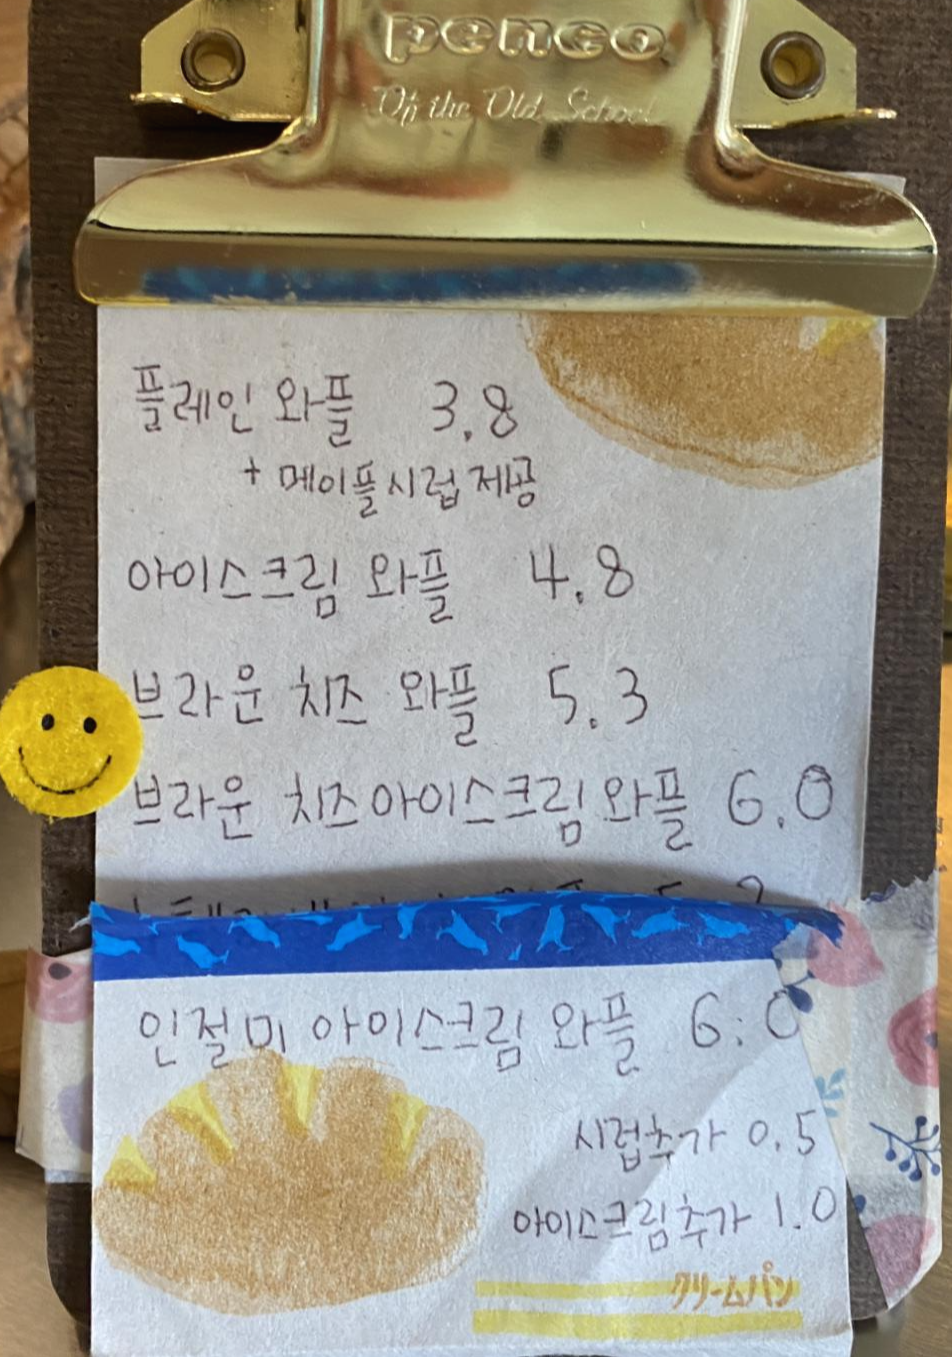 penco
Of the Old School
플레인 와플 3.8
+ 메이플시럽 제공
아이스크림 와플 4.8
브라운 치즈 와플 5.3
브라운 치즈아이스크림 와플 6.0
인절미 아이스크림 와플 6.0
시럽추가 0.5
아이스크림추가 1.0
クリームパン